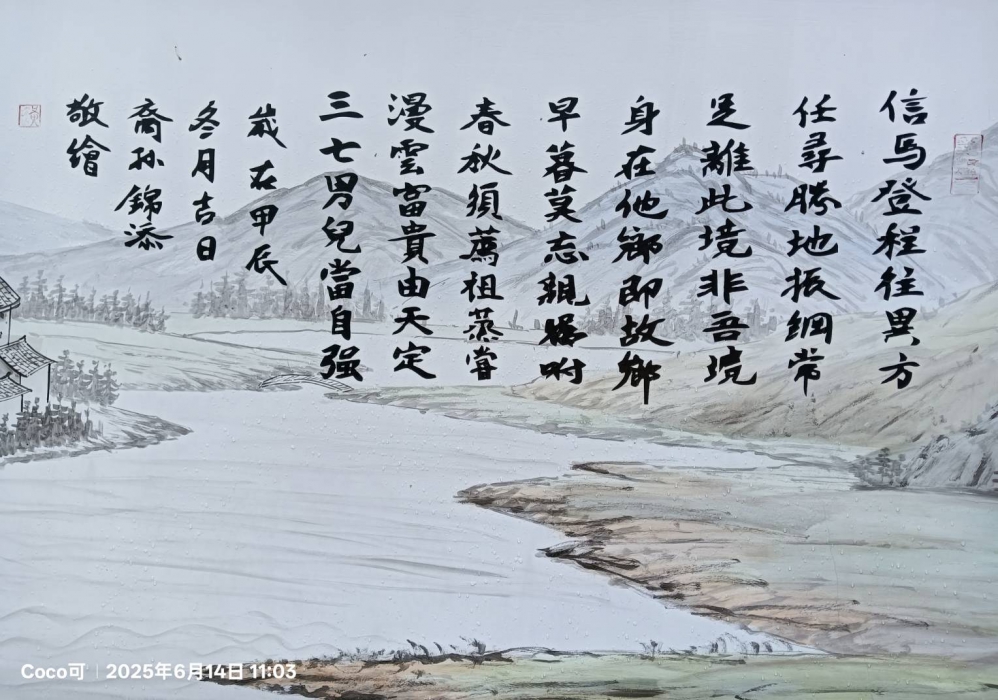 信馬登程往異方
任尋勝地振綱常
足離此境非吾境
身在他鄉即故鄉
早暮莫忘親囑咐
春秋須薦祖蒸嘗
漫雲富貴由天定
三七男兒當自强
歲在甲辰
冬月吉日
裔孙錦添
敬繪
Coco可 | 2025年6月14日 11:03